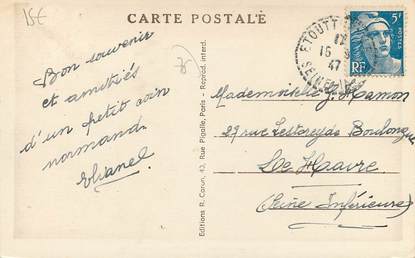 15€
CARTE POSTALE
5F
POSTES
RF
ETOUTT
17
16
47
SEINE
Bon souvenir
et amitiés
d'un petit coin
normand.
Mademoiselle J. Hamon
29 rue Boulogne
Le Havre
(Seine Inférieure)
Editions R. Caron, 43, Rue Pigalle, Paris - Reprod. interd.